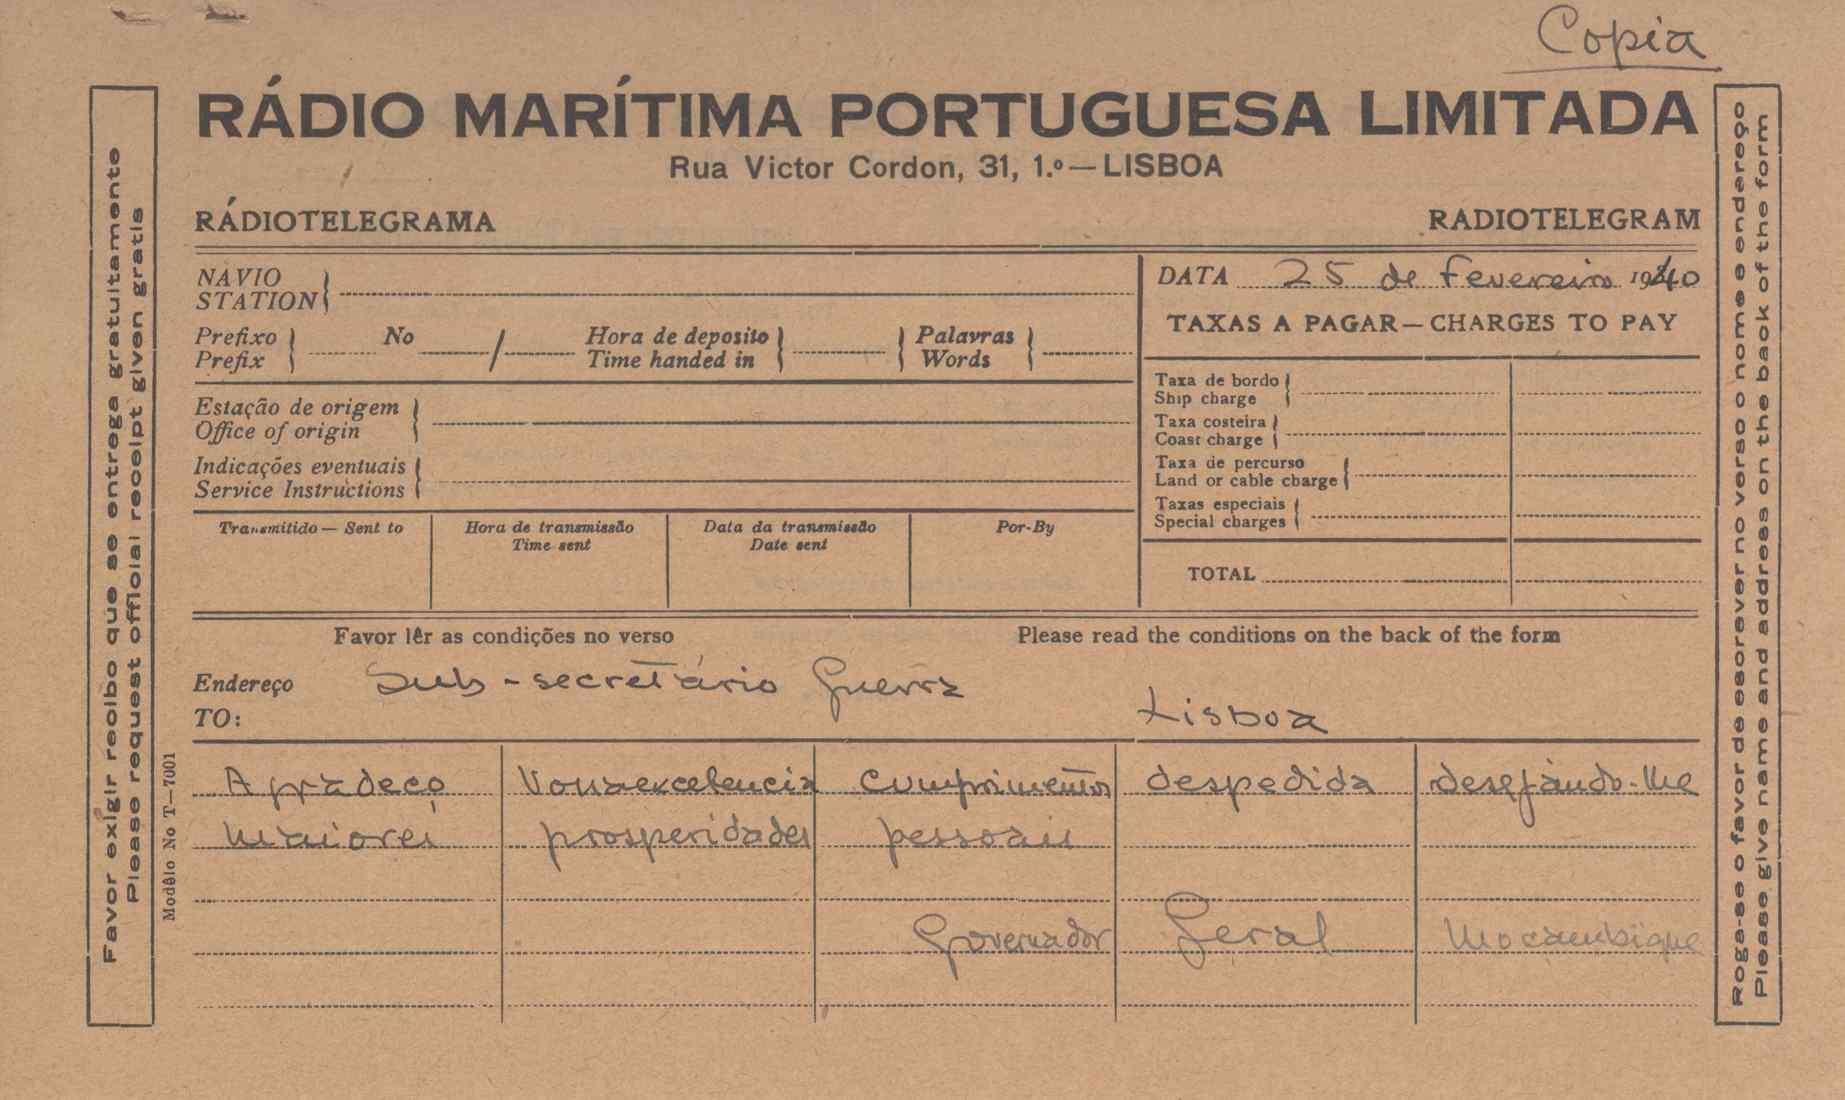 Copia
RÁDIO MARÍTIMA PORTUGUESA LIMITADA
Rua Victor Cordon, 31, 1.º — LISBOA
RÁDIOTELEGRAMA RADIOTELEGRAM
NAVIO
STATION
DATA 25 de Fevereiro 1940
TAXAS A PAGAR — CHARGES TO PAY
Prefixo No / Hora de deposito Palavras
Prefix Time handed in Words
Estação de origem
Office of origin
Indicações eventuais
Service Instructions
Taxa de bordo
Ship charge
Taxa costeira
Coast charge
Taxa de percurso
Land or cable charge
Taxas especiais
Special charges
TOTAL
Transmitido — Sent to Hora de transmissão Data da transmissão Por-By
Time sent Date sent
Favor lêr as condições no verso Please read the conditions on the back of the form
Endereço Sub-secretário Guerra
TO: Lisboa
Agradeço Vossaexcelencia cumprimentos despedida desejando-lhe
maiores prosperidades pessoais
Governador Geral Moçambique
Favor exigir recibo que se entrega gratuitamente
Please request official receipt given gratis
Modêlo No T—7001
Roga-se o favor de escrever no verso o nome e endereço
Please give name and address on the back of the form